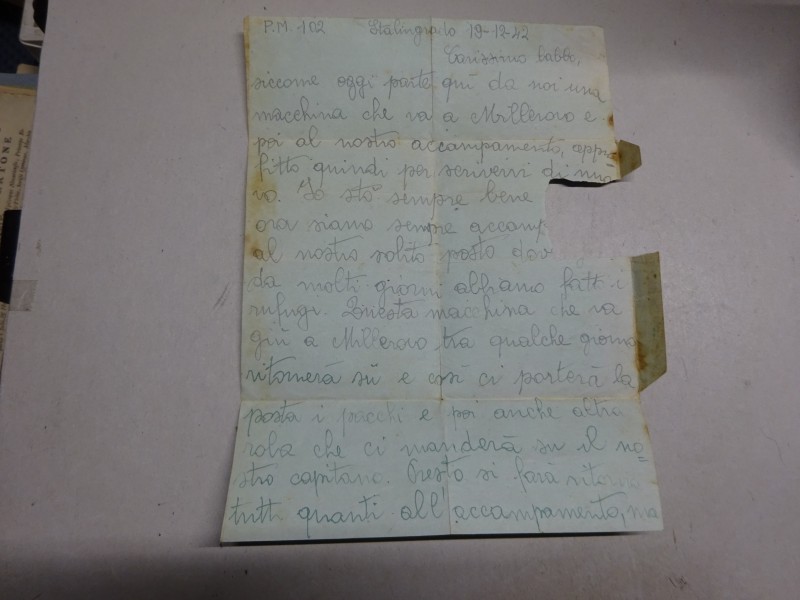 P.M. 102 Stalingrado 19-12-42
Carissimo babbo,
siccome oggi parte qui da noi una
macchina che va a Millerovo e
poi al nostro accampamento, appro=
fitto quindi per scrivervi di nuo
vo. Io stò sempre bene
ora siamo sempre accamp
al nostro solito posto dov
da molti giorni abbiamo fatti i
rufugi. Questa macchina che va
giù a Millerovo tra qualche giorno
ritornerà sù e così ci porterà la
posta i pacchi e poi anche altra
roba che ci manderà su il no=
stro capitano. Presto si farà ritorno
tutti quanti all'accampamento, ma